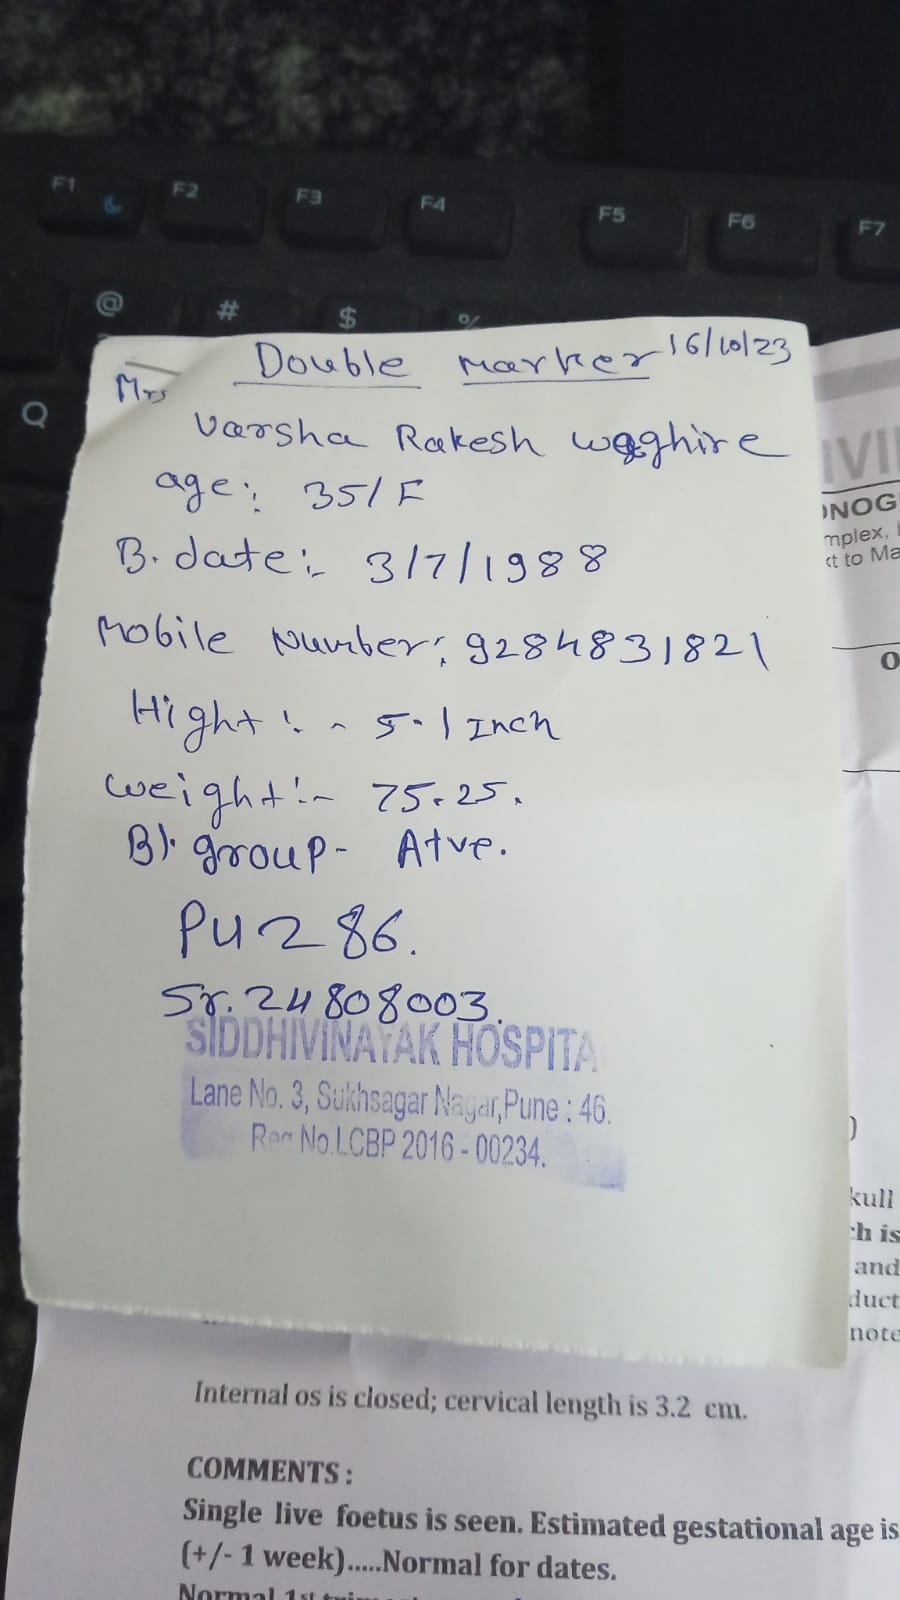 F1 F2 F3 F4 F5 F6 F7
@ # $ %
Q
Double marker 16/10/23
Mrs
Varsha Rakesh waghire
age:- 35/F
B. date:- 3/7/1988
Mobile Number: 9284831821
Hight:- 5.1 Inch
weight:- 75.25.
Bl. group- A+ve.
PU286.
Sr. 24808003.
SIDDHIVINAYAK HOSPITA
Lane No. 3, Sukhsagar Nagar, Pune : 46.
Reg No.LCBP 2016 - 00234.
IVI
ONOG
mplex,
xt to Ma
O
)
kull
ch is
and
duct
note
Internal os is closed; cervical length is 3.2 cm.
COMMENTS :
Single live foetus is seen. Estimated gestational age is
(+/- 1 week).....Normal for dates.
Normal 1st